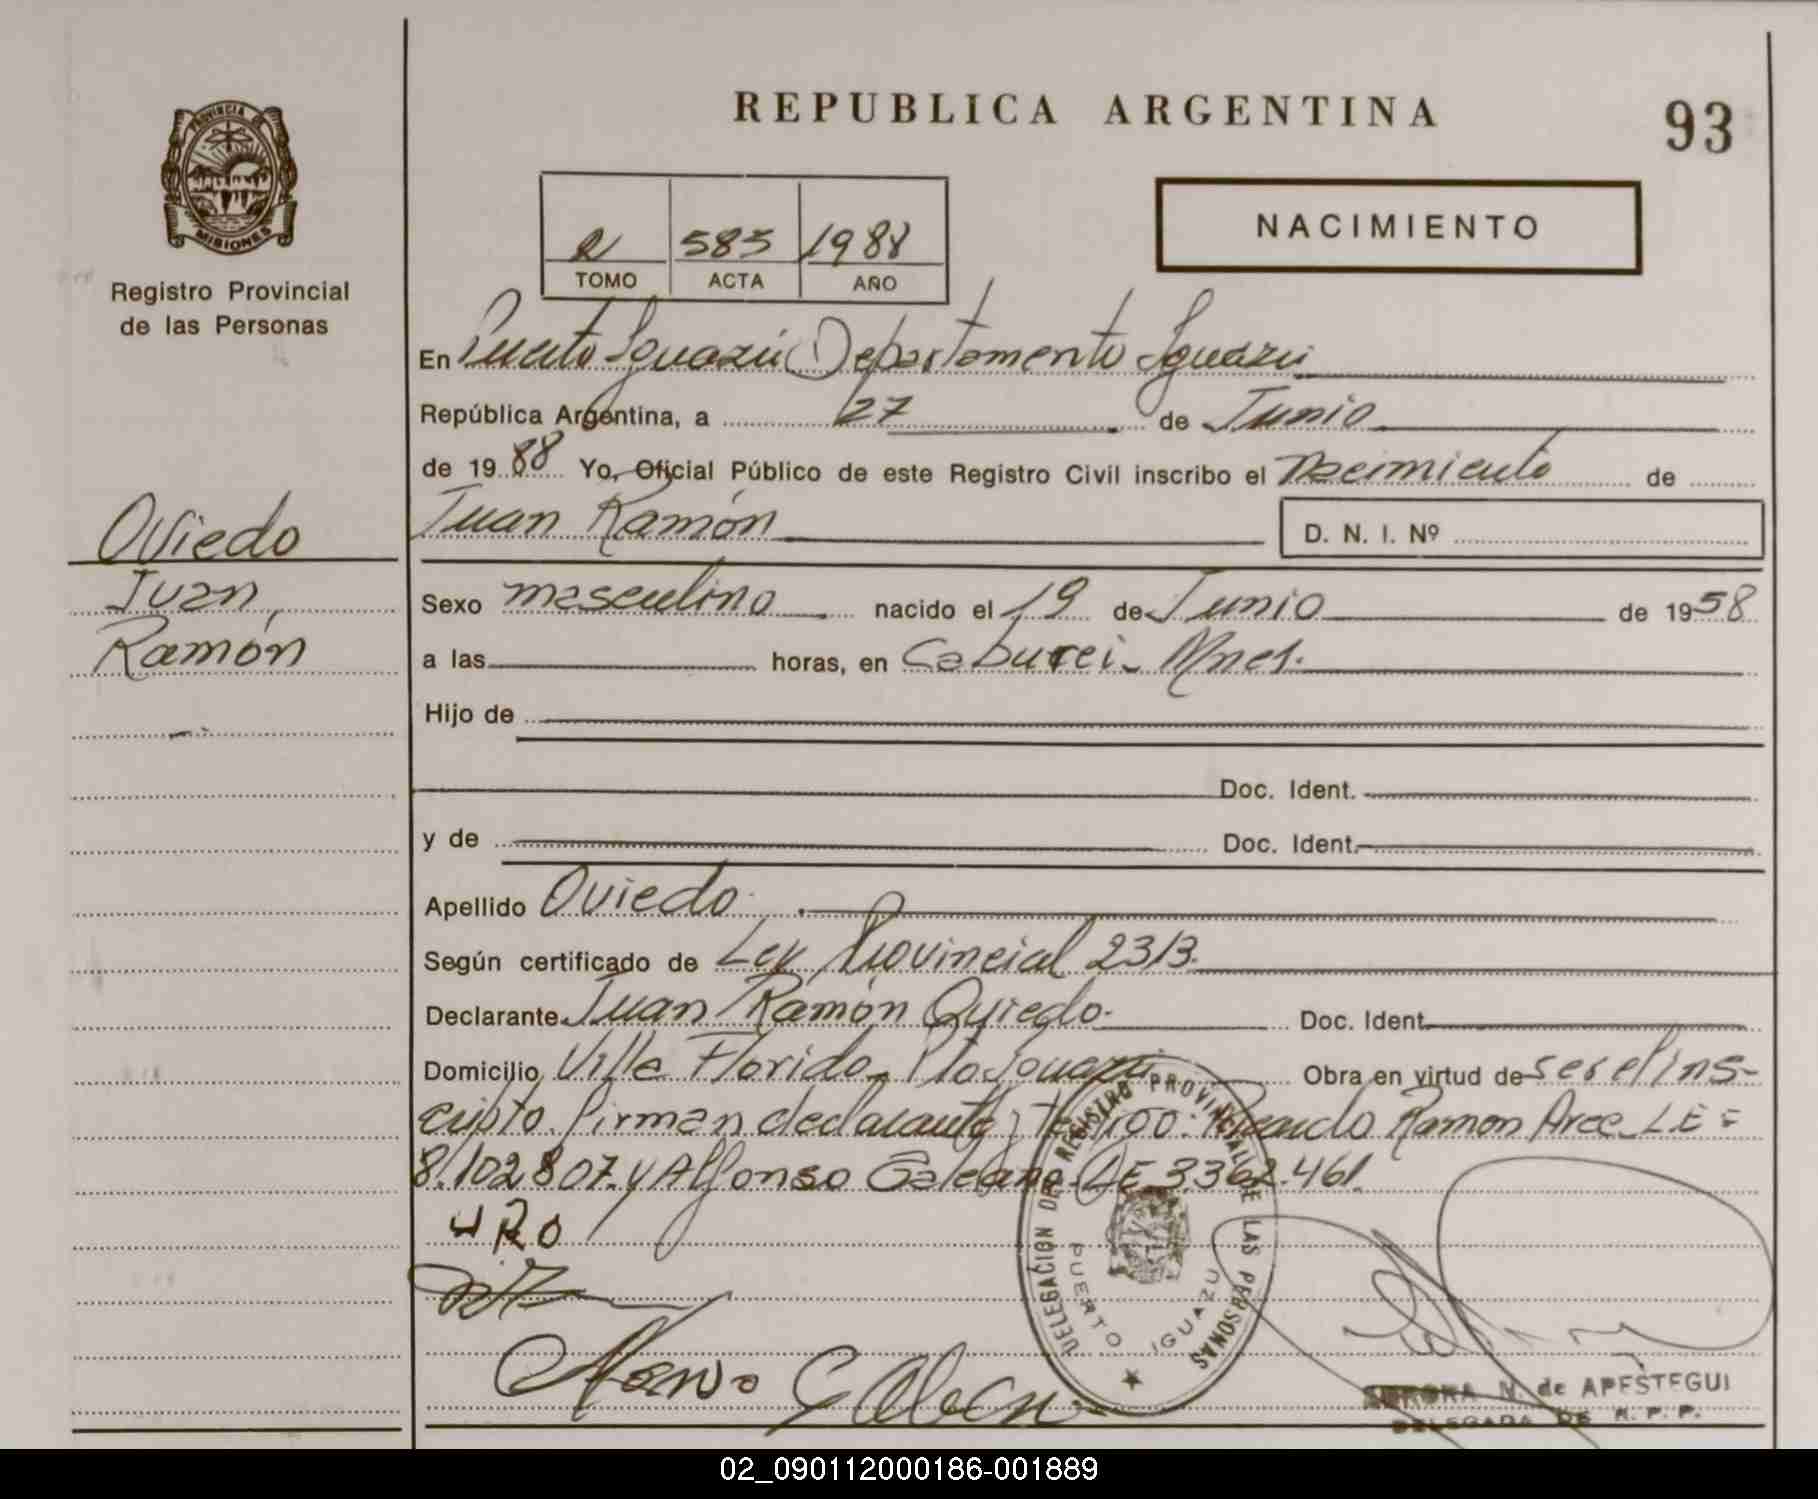 REPUBLICA ARGENTINA
93
PROVINCIA DE
MISIONES
Registro Provincial
de las Personas
NACIMIENTO
585 1988
TOMO ACTA AÑO
En Puerto Iguazú Departamento Iguazú
República Argentina, a 27 de Junio
de 1988 Yo, Oficial Público de este Registro Civil inscribo el Nacimiento de
Juan Ramón D. N. I. Nº
Oviedo
Juan
Ramón
Sexo masculino nacido el 19 de Junio de 1958
a las horas, en Caburei - Mnes.
Hijo de
Doc. Ident.
y de Doc. Ident.
Apellido Oviedo
Según certificado de Ley Provincial 2313.
Declarante Juan Ramón Oviedo. Doc. Ident.
Domicilio Villa Florida - Pto Iguazú Obra en virtud de ser el ins-
cripto. Firman declarante y testigo: Ricardo Ramon Arce L.E=
8.102.807. y Alfonso Galeano LE 3.362.461.
DELEGACION DEL REGISTRO PROVINCIAL DE LAS PERSONAS
PUERTO IGUAZU
Alfonso Galeano
AURORA N. de APESTEGUI
DELEGADA DE R. P. P.
02_090112000186-001889